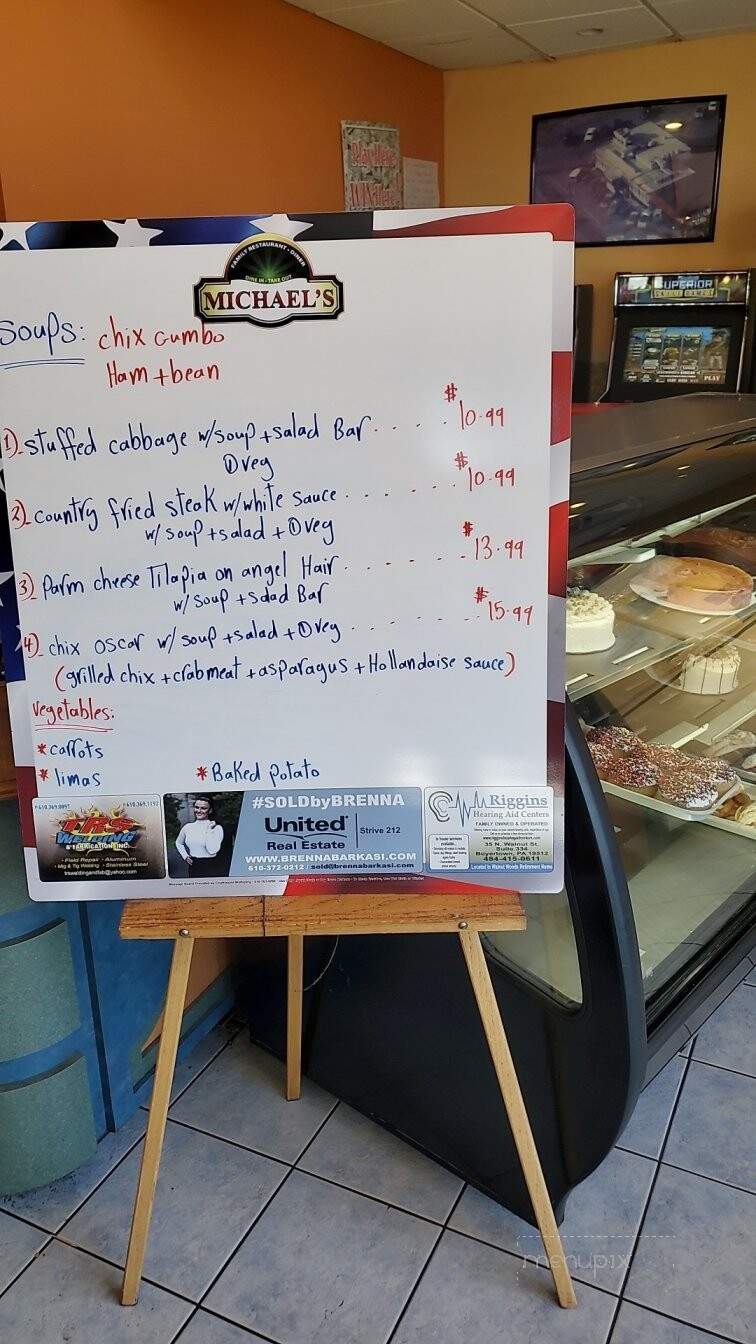 FAMILY RESTAURANT • DINER
DINE IN - TAKE OUT
MICHAEL'S
SUPERIOR
PLAY
Soups: chix Gumbo
Ham + bean
1) stuffed cabbage w/soup + salad Bar . . . . . $10.99
① veg
2) country fried steak w/white sauce . . . . . . . $10.99
w/ soup + salad + ① veg
3) Parm cheese Tilapia on angel Hair . . . . . . . $13.99
w/ soup + salad Bar
4) chix oscar w/ soup + salad + ① veg . . . . . . . $15.99
(grilled chix + crabmeat + asparagus + Hollandaise sauce)
Vegetables:
* carrots
* limas
* Baked potato
P 610.369.0897 F 610.369.1192
TRS
WELDING
& FABRICATION, INC.
- Field Repair - Aluminum
- Mig & Tig Welding - Stainless Steel
trsweldingandfab@yahoo.com
#SOLDbyBRENNA
United®
Real Estate
Strive 212
WWW.BRENNABARKASI.COM
610-372-0212 / sold@brennabarkasi.com
Riggins
Hearing Aid Centers
FAMILY OWNED & OPERATED
35 N. Walnut St.
Suite 334
Boyertown, PA 19512
484-415-0611
Located in Walnut Woods Retirement Home
menupix